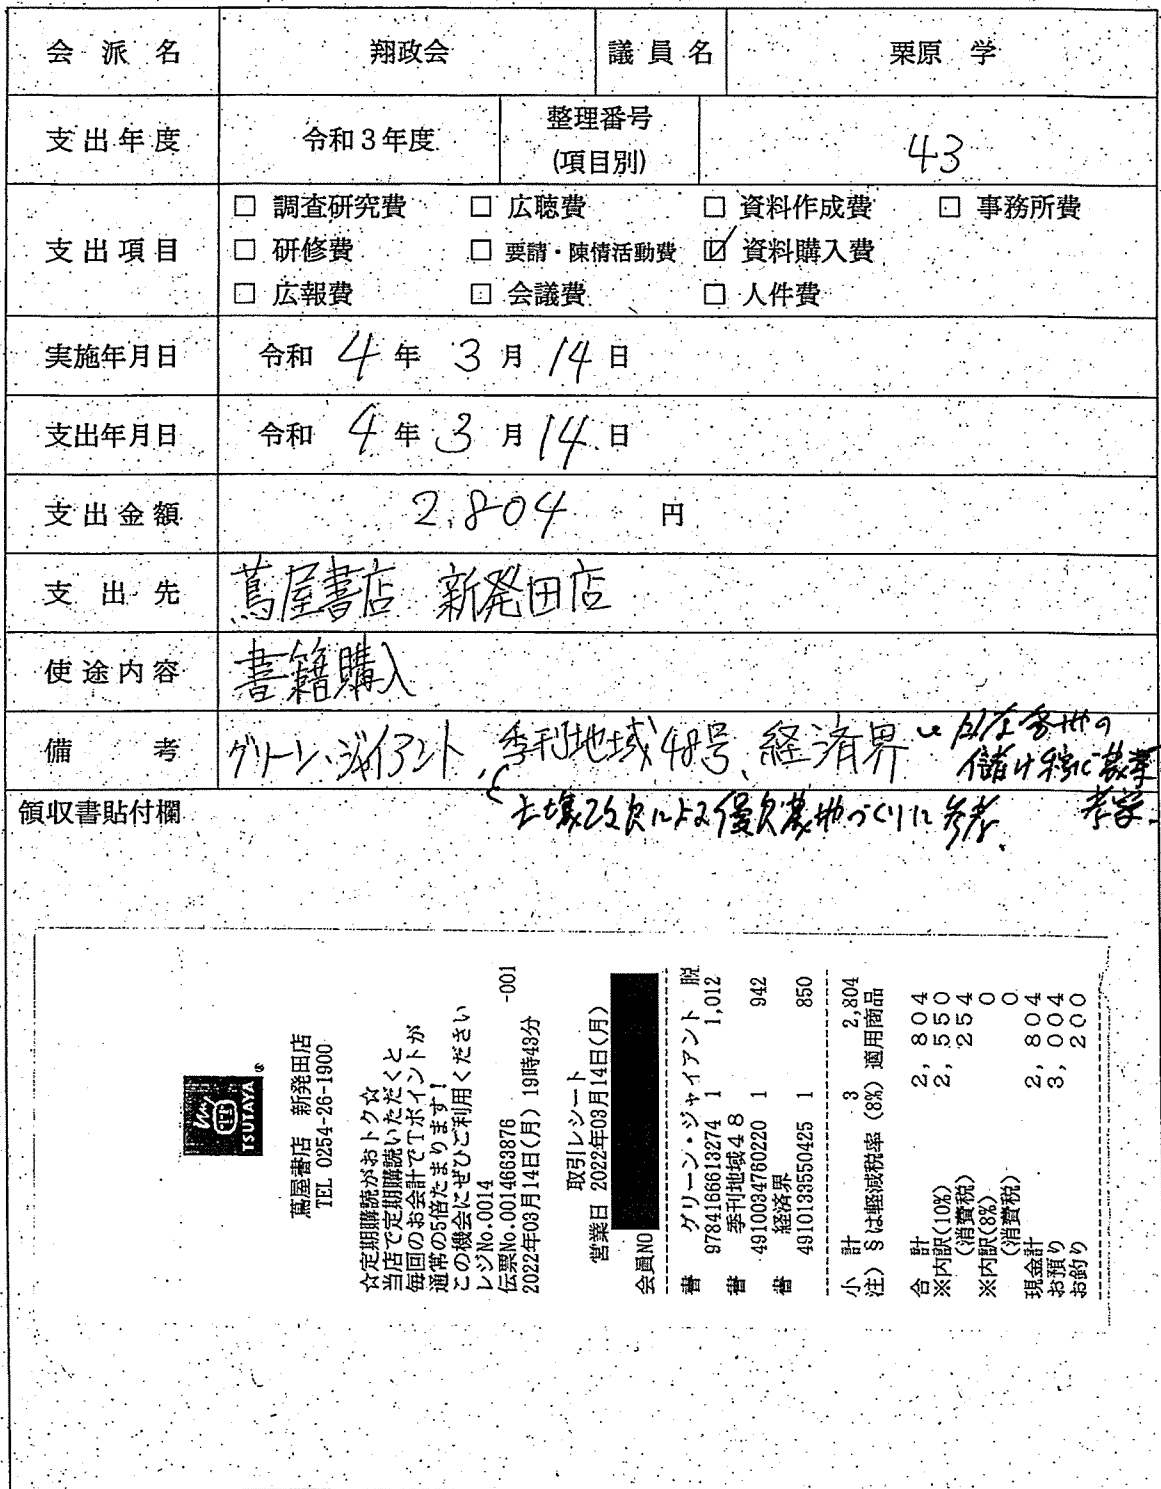 会派名 翔政会 議員名 栗原 学
支出年度 令和3年度 整理番号(項目別) 43
支出項目
□ 調査研究費 □ 広聴費 □ 資料作成費 □ 事務所費
□ 研修費 □ 要請・陳情活動費 ☑ 資料購入費
□ 広報費 □ 会議費 □ 人件費
実施年月日 令和 4年 3月 14日
支出年月日 令和 4年 3月 14日
支出金額 2,804 円
支出先 蔦屋書店 新発田店
使途内容 書籍購入
備考 グリーン・ジャイアント、季刊地域48号、経済界
儲け
土壌改良による優良農地づくりに参考、
領収書貼付欄
TSUTAYA
蔦屋書店 新発田店
TEL 0254-26-1900
☆定期購読がおトク☆
当店で定期購読いただくと
毎回のお会計でTポイントが
通常の5倍たまります!
この機会にぜひご利用ください
レジNo.0014
伝票No.0014663876 -001
2022年03月14日(月) 19時43分
取引レシート
営業日 2022年03月14日(月)
会員NO
書 グリーン・ジャイアント 脱
9784166613274 1 1,012
書 季刊地域48
4910034760220 1 942
書 経済界
4910133550425 1 850
小計 3 2,804
注)§は軽減税率(8%)適用商品
合計 2,804
※内訳(10%) 2,550
(消費税) 254
※内訳(8%) 0
(消費税) 0
現金計 2,804
お預り 3,004
お釣り 200